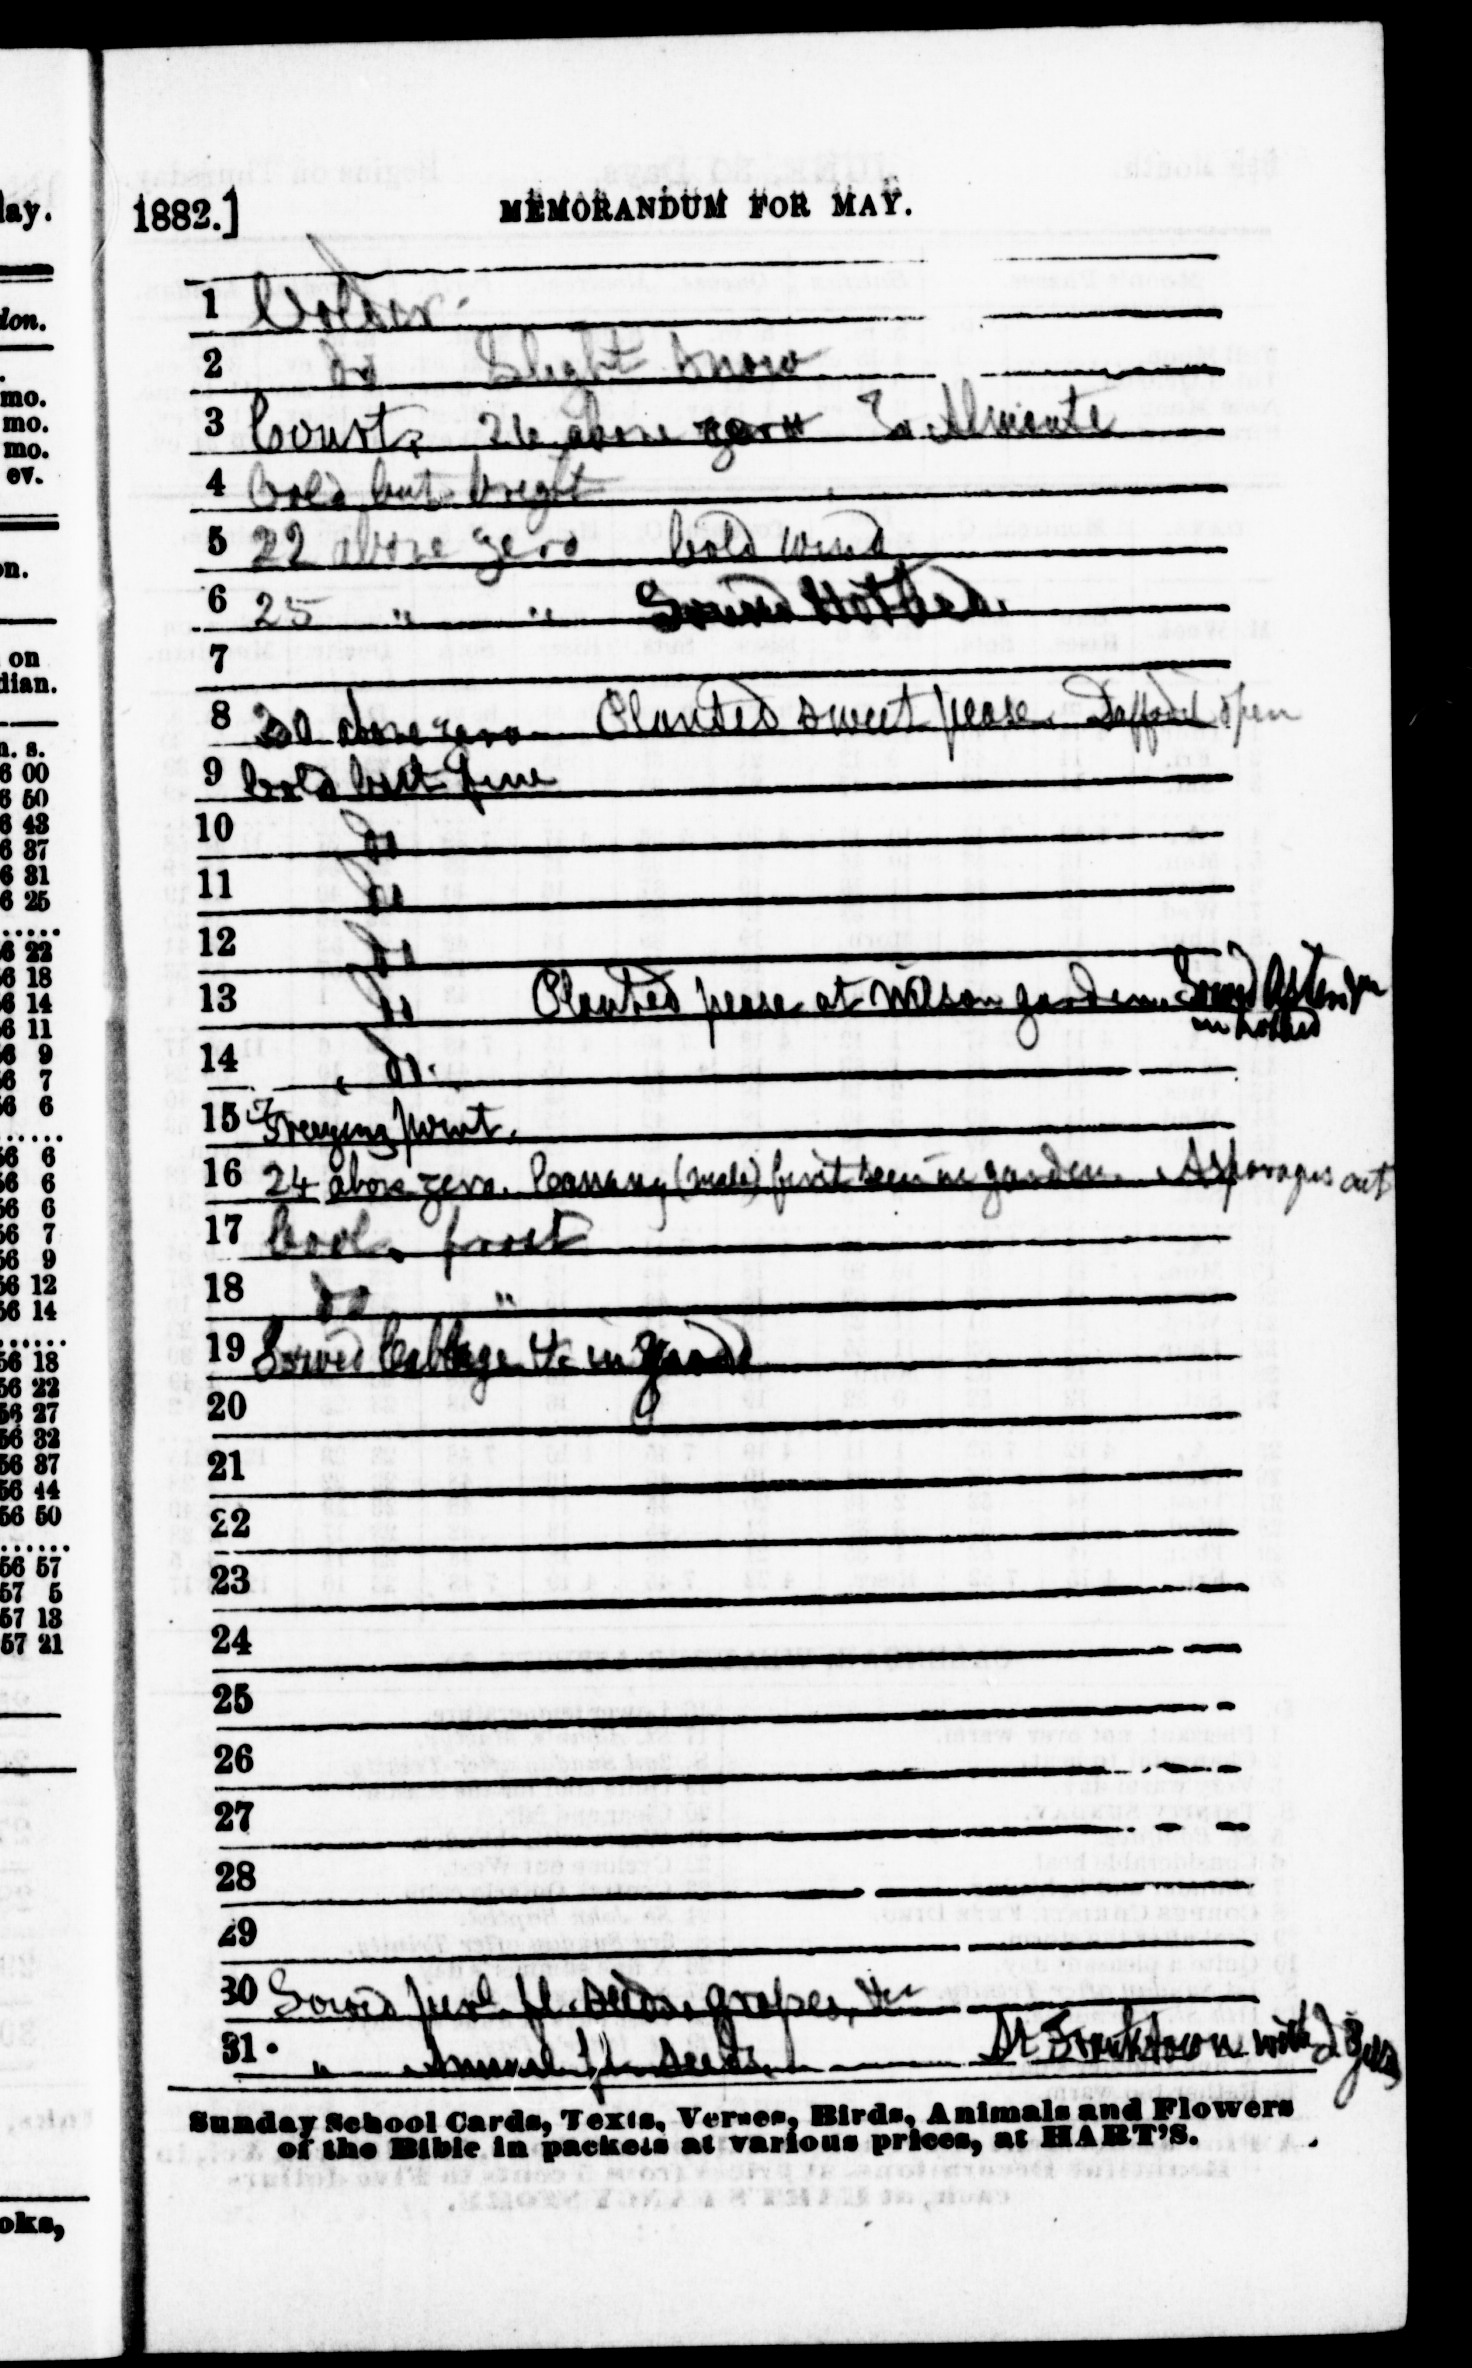 1882.] MEMORANDUM FOR MAY.
1 Colder.
2 do Slight snow
3 Court, 26 above zero To Almonte
4 Cold but bright
5 22 above zero Cold wind
6 25 " " Sowed Hotbed.
7
8 30 above zero Planted sweet pease. Daffodil open
9 Cold but fine
10 do
11 do
12 do
13 do Planted pease at Wilson garden. Sowed Asters
in hotbed
14 do.
15 Freezing point.
16 24 above zero. Canary (male) first seen in garden. Asparagus out
17 Cool, frost
18 do "
19 Sowed Cabbage &c in garden
20
21
22
23
24
25
26
27
28
29
30 Sowed fl. seeds grapes, &c
31. " Annual fl. seeds At Franktown with
Sunday School Cards, Texts, Verses, Birds, Animals and Flowers
of the Bible in packets at various prices, at HART'S.